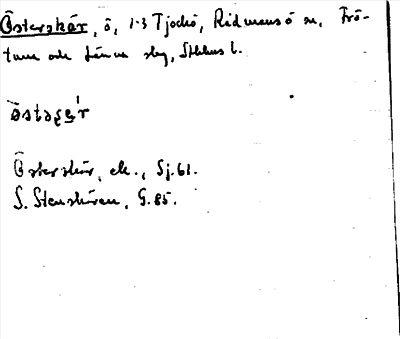 Österskär, ö, 1:3 Tjockö, Rådmansö sn, Frö-
tuna och Länna slg, Sthlms l.
Österskär, ek., Sj. 61.
S. Stenskären, G. 85.